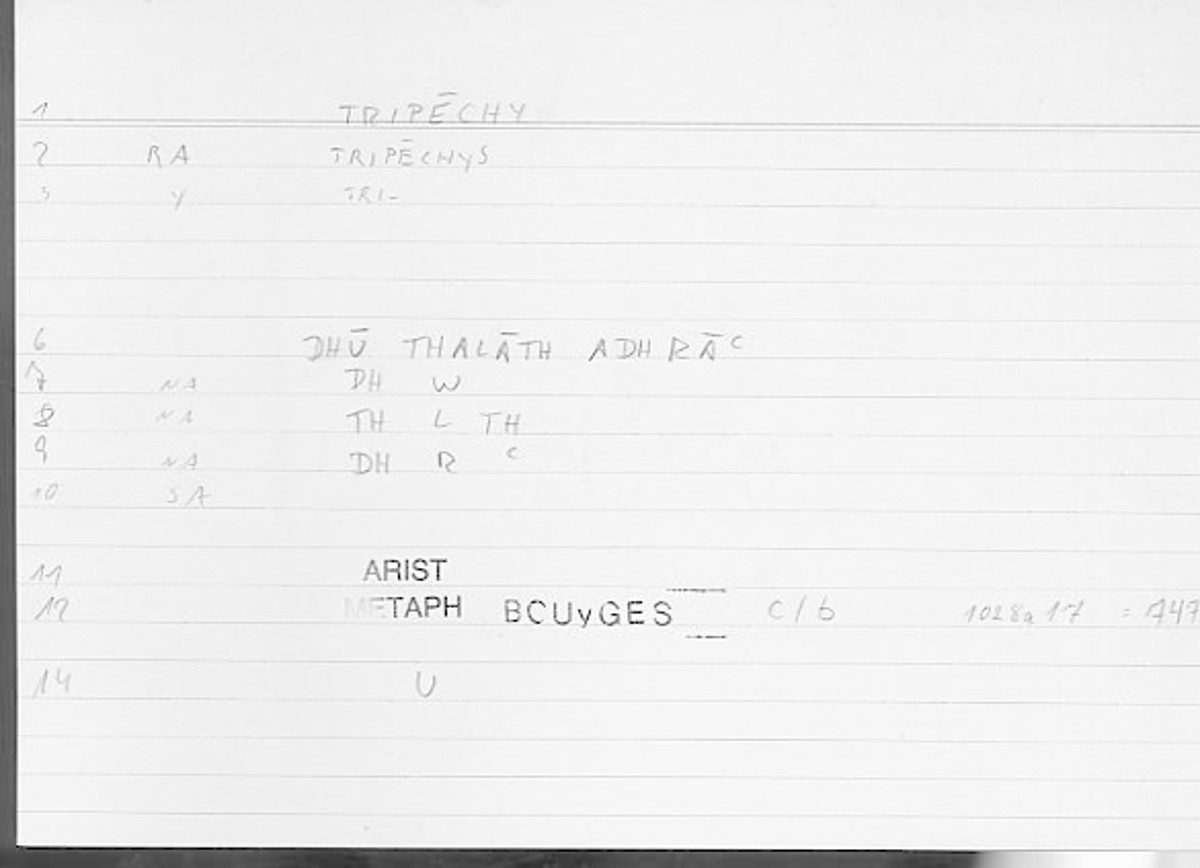 1 TRIPĒCHY
2 RA TRIPĒCHYS
3 Y TRI-
6 DHŪ THALĀTH ADHRĀC
7 NA DH W
8 NA TH L TH
9 NA DH R C
10 SA
11 ARIST
12 METAPH BCUyGES C/b 1028a17 = 747
14 U